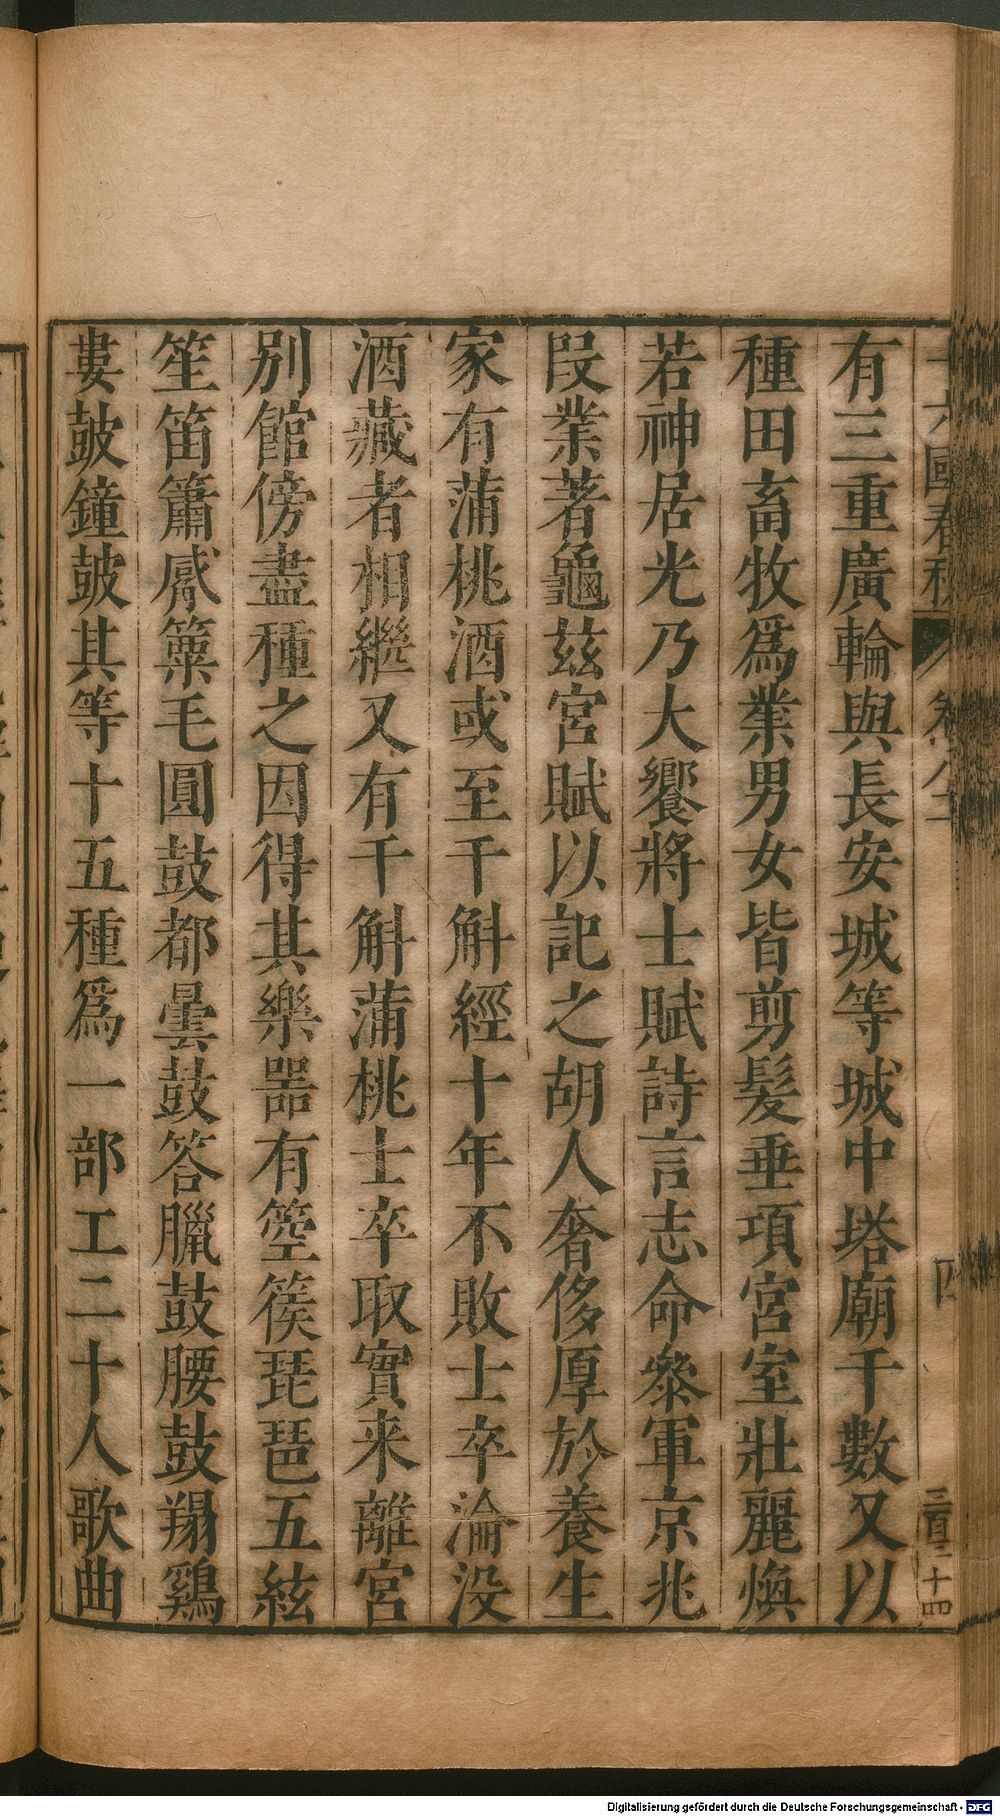 十六國春秋 卷八十一 四 三百二十四
有三重廣輪與長安城等城中塔廟千數又以
種田畜牧爲業男女皆剪髮垂項宮室壯麗煥
若神居光乃大饗將士賦詩言志命叅軍京兆
段業著龜玆宮賦以記之胡人奢侈厚於養生
家有蒲桃酒或至千斛經十年不敗士卒淪没
酒藏者相繼又有千斛蒲桃士卒取實来離宮
別館傍盡種之因得其樂器有箜篌琵琶五絃
笙笛簫觱篥毛圓鼓都曇鼓答臘鼓腰鼓羯鷄
婁皷鐘皷其等十五種爲一部工二十人歌曲
Digitalisierung gefördert durch die Deutsche Forschungsgemeinschaft - DFG